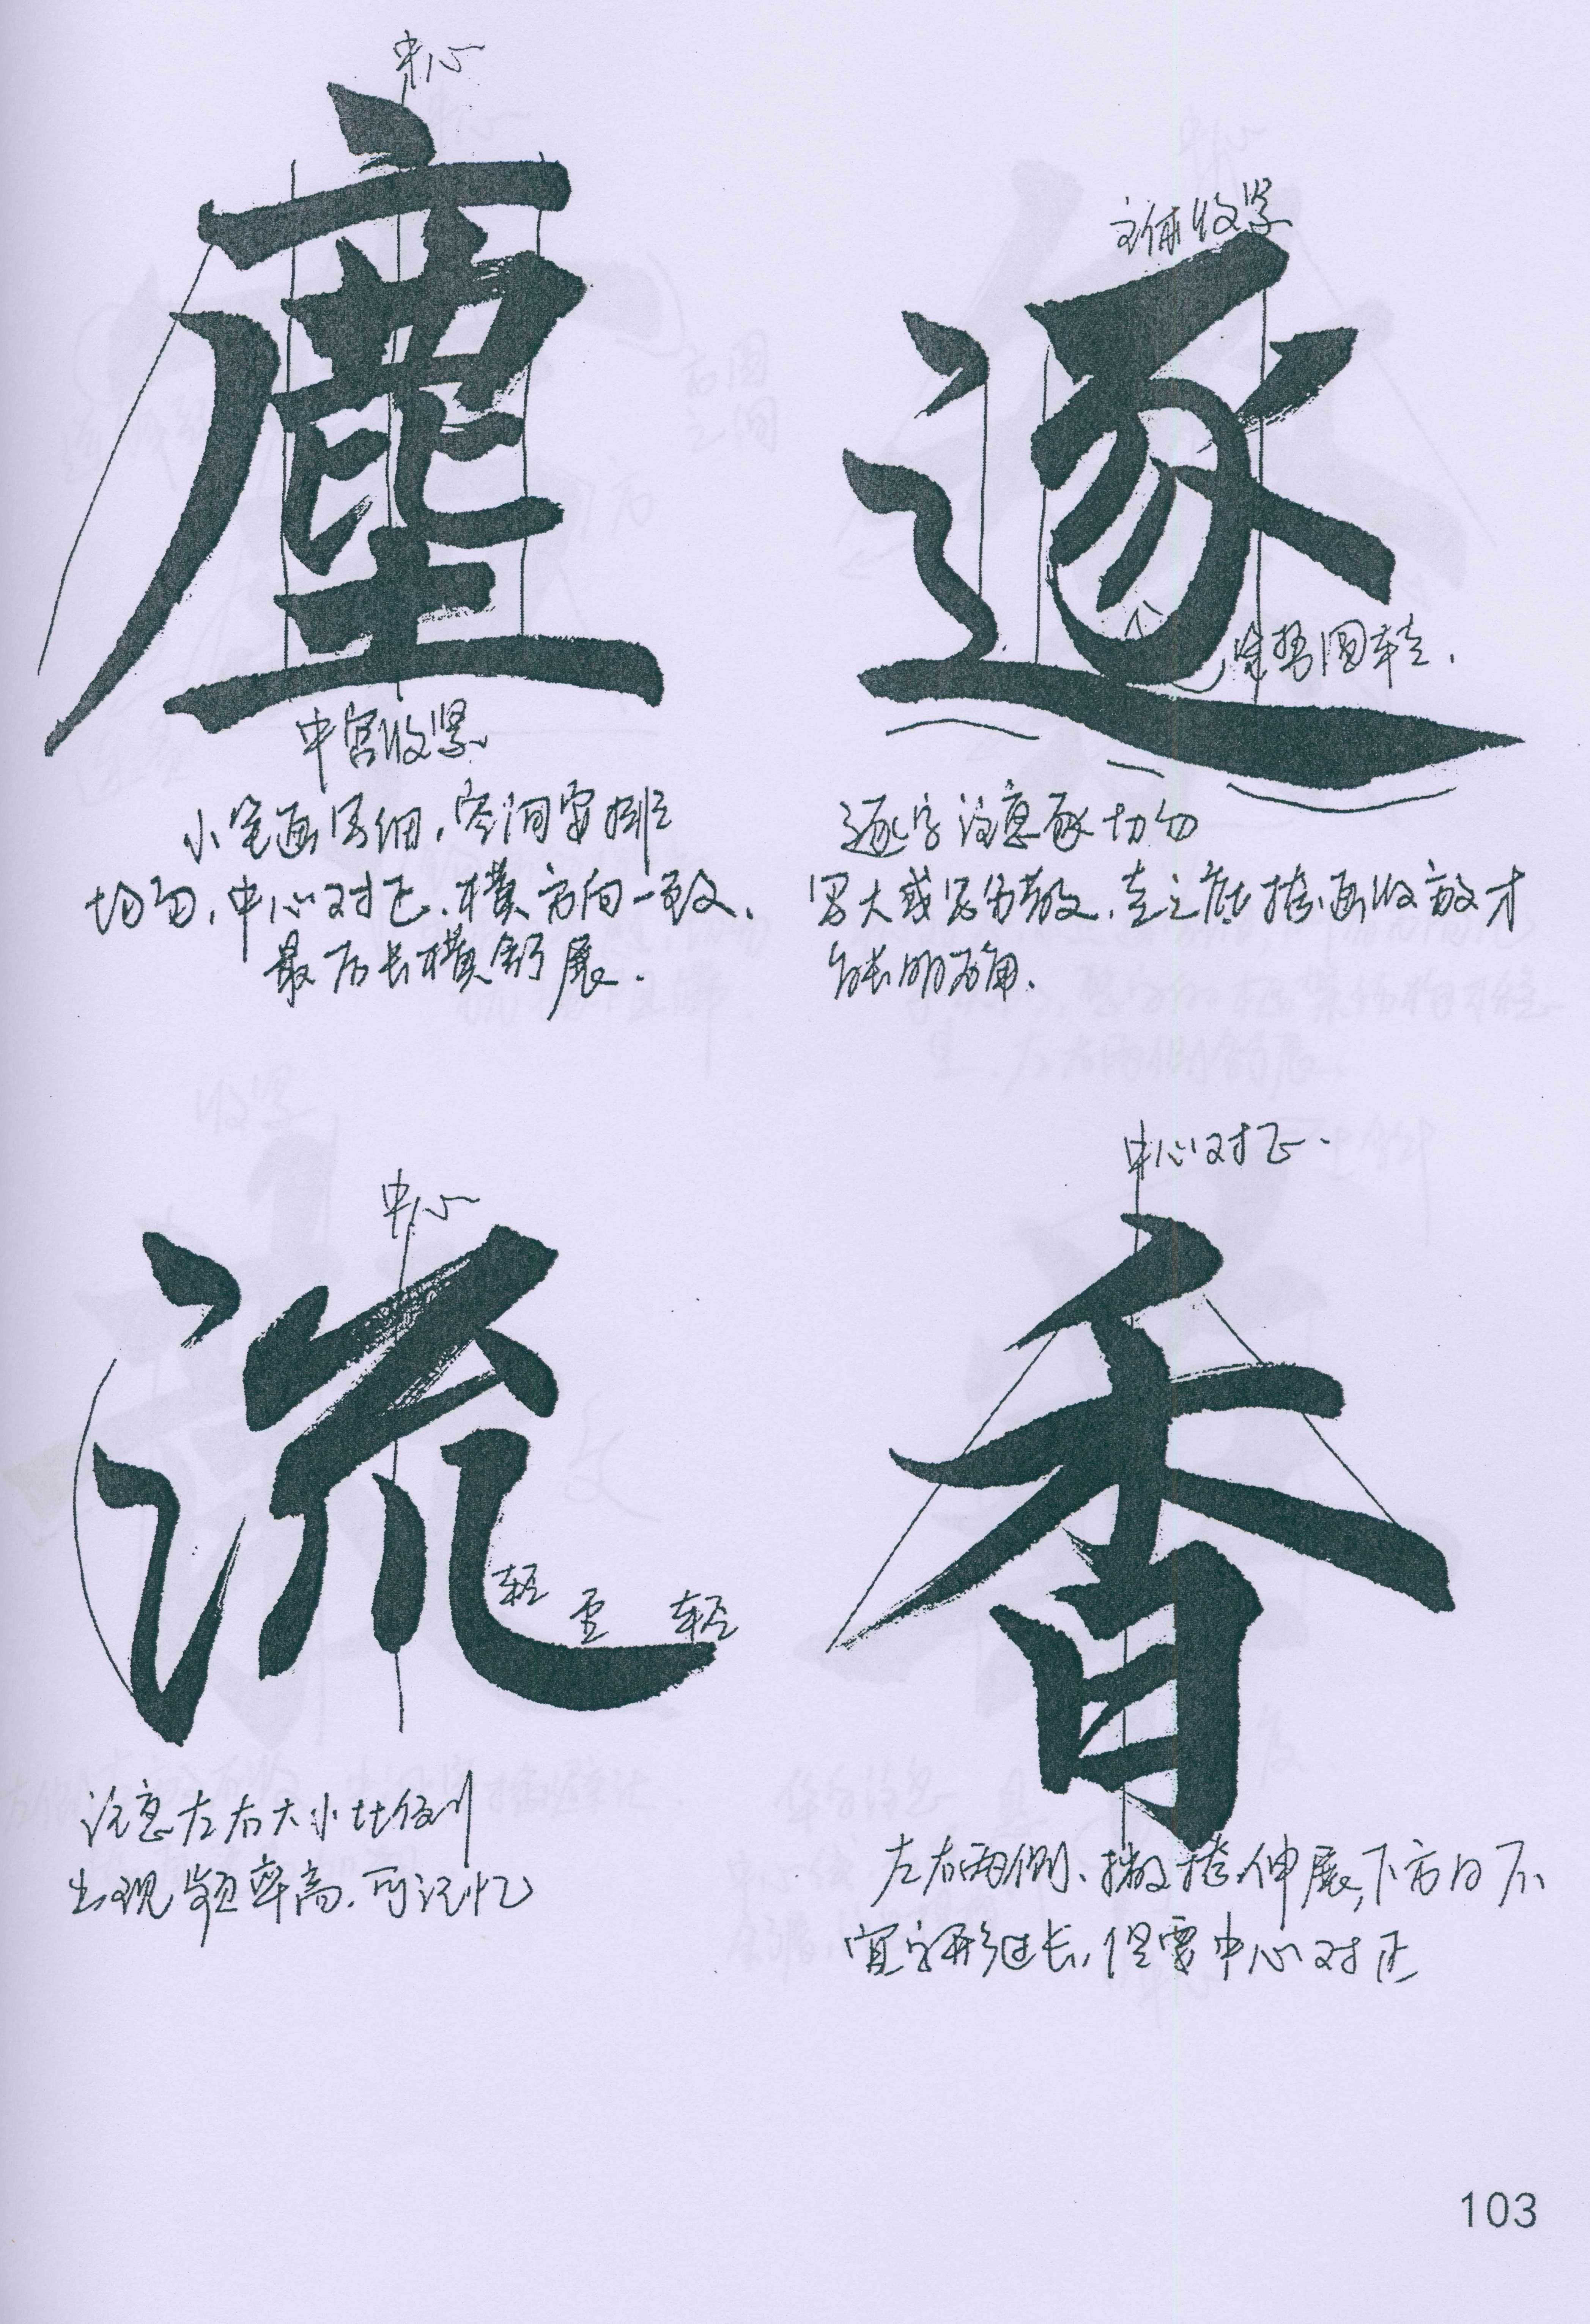 中心
塵
中宫收紧
小笔画写细，空间安排
均匀，中心对正，横方向一致、
最后长横舒展.
主体收紧
逐
笔势圆转.
逐字注意豕切勿
写大或写分散，走之底捺画收放才
能长明确.
中心
流
轻 重 轻
注意左右大小比例
出现频率高，可记忆
中心对正.
香
左右两侧、撇捺伸展，下方日不
宜字形过长，但需中心对正
103